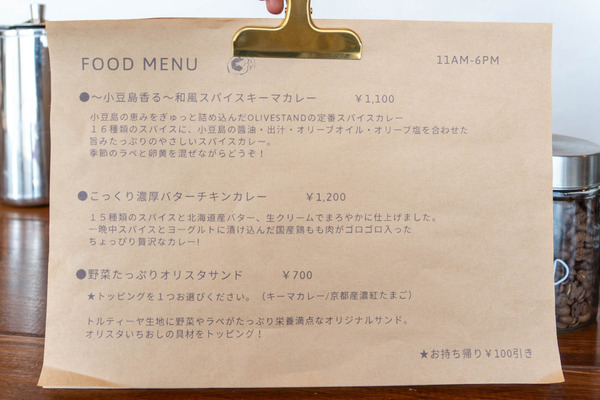 FOOD MENU
11AM-6PM
●～小豆島香る～和風スパイスキーマカレー ￥1,100
小豆島の恵みをぎゅっと詰め込んだOLIVESTANDの定番スパイスカレー
１６種類のスパイスに、小豆島の醤油・出汁・オリーブオイル・オリーブ塩を合わせた
旨みたっぷりのやさしいスパイスカレー。
季節のラペと卵黄を混ぜながらどうぞ！
●こっくり濃厚バターチキンカレー ￥1,200
１５種類のスパイスと北海道産バター、生クリームでまろやかに仕上げました。
一晩中スパイスとヨーグルトに漬け込んだ国産鶏もも肉がゴロゴロ入った
ちょっぴり贅沢なカレー!
●野菜たっぷりオリスタサンド ￥700
★トッピングを１つお選びください。（キーマカレー/京都産濃紅たまご）
トルティーヤ生地に野菜やラペがたっぷり栄養満点なオリジナルサンド。
オリスタいちおしの具材をトッピング！
★お持ち帰り￥100引き